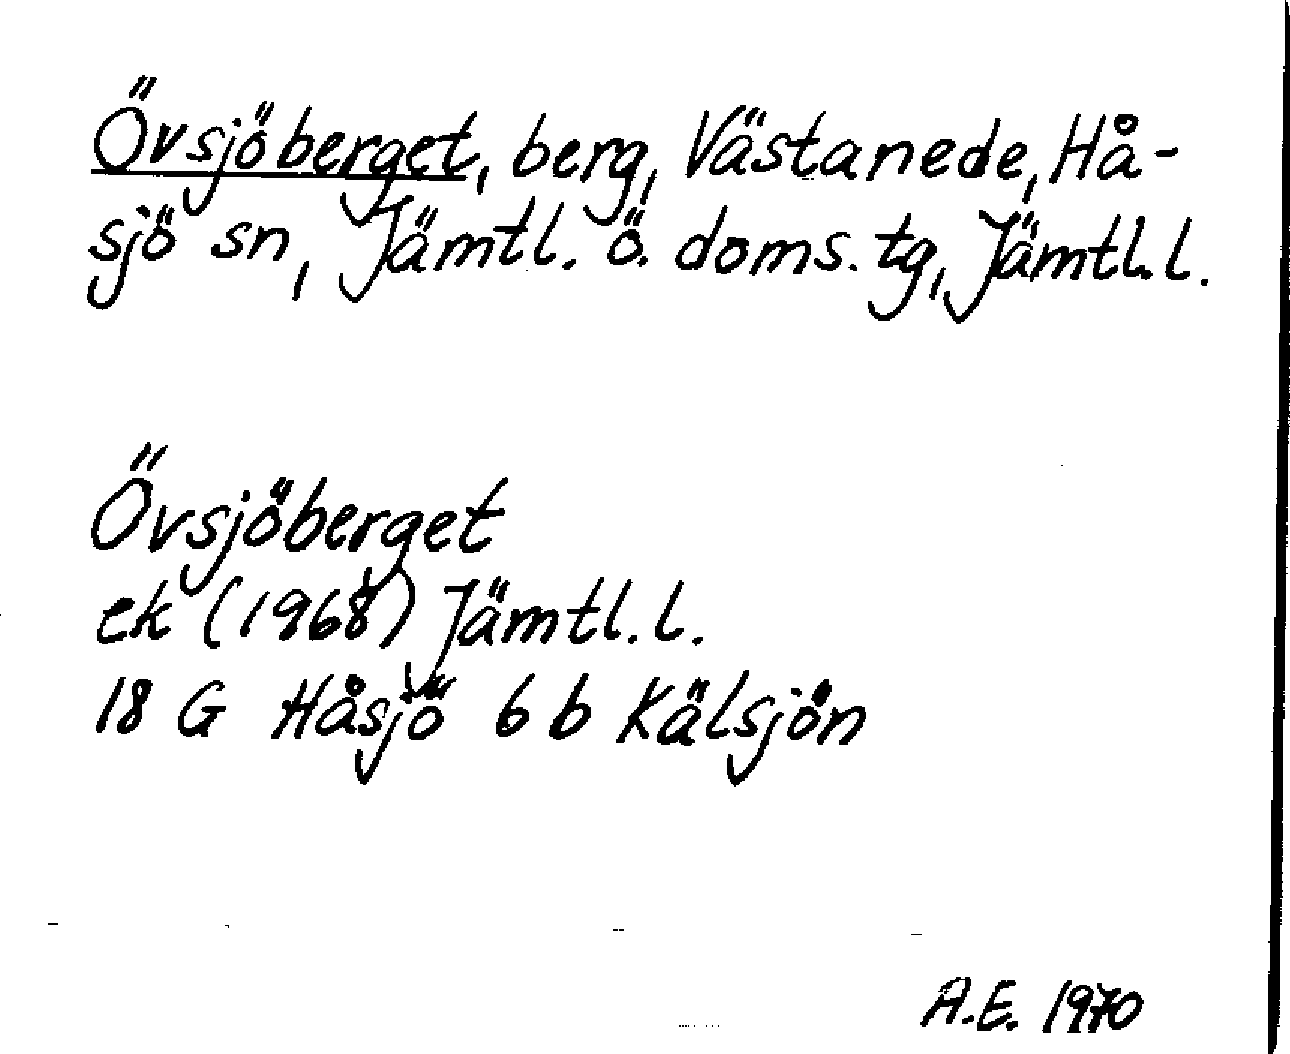 Övsjöberget, berg, Västanede, Hå-
sjö sn, Jämtl. ö. doms. tg, Jämtl. l.
Övsjöberget
ek (1968) Jämtl. l.
18 G Håsjö 6 b Kälsjön
A.E. 1970